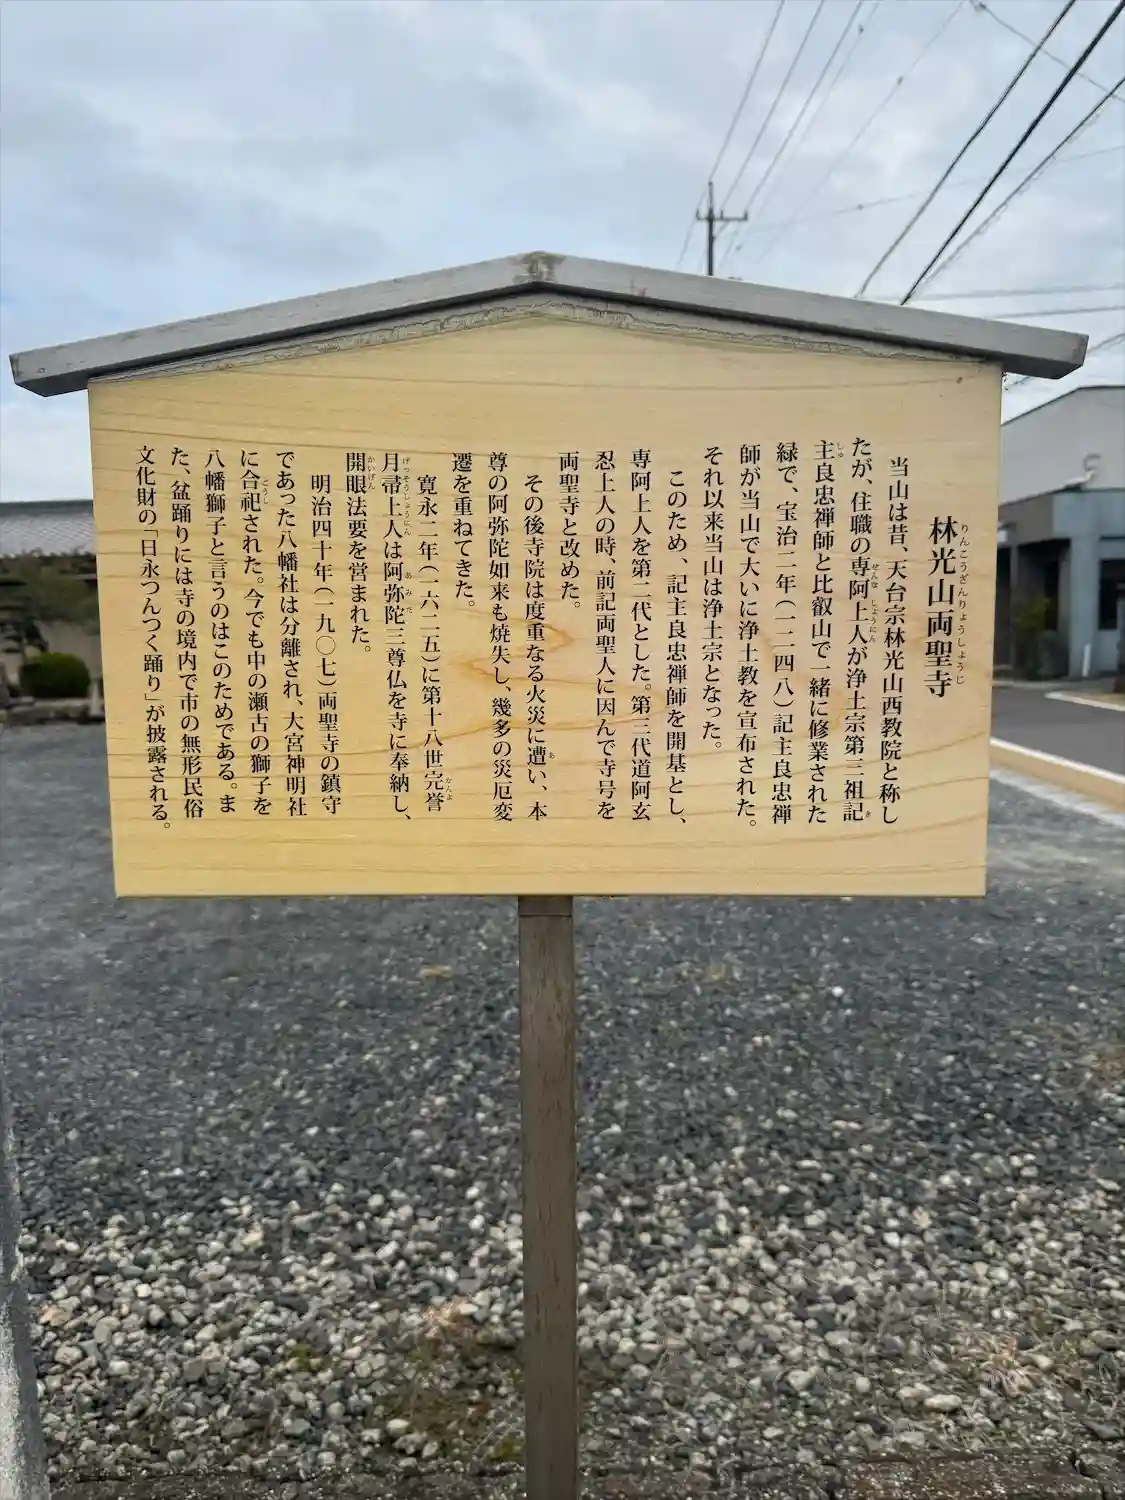 林光山両聖寺
りんこうざんりょうしょうじ
当山は昔、天台宗林光山西教院と称し
たが、住職の専阿上人が浄土宗第三祖記
せんな しょうにん
き
主良忠禅師と比叡山で一緒に修業された
しゅ
緑で、宝治二年(一二四八)記主良忠禅
師が当山で大いに浄土教を宣布された。
それ以来当山は浄土宗となった。
このため、記主良忠禅師を開基とし、
専阿上人を第二代とした。第三代道阿玄
忍上人の時、前記両聖人に因んで寺号を
両聖寺と改めた。
その後寺院は度重なる火災に遭い、本
あ
尊の阿弥陀如来も焼失し、幾多の災厄変
遷を重ねてきた。
寛永二年(一六二五)に第十八世完誉
かんよ
月帯上人は阿弥陀三尊仏を寺に奉納し、
げっそうしょうにん
あみだ
開眼法要を営まれた。
かいげん
明治四十年(一九〇七)両聖寺の鎮守
であった八幡社は分離され、大宮神明社
に合祀された。今でも中の瀬古の獅子を
ごうし
八幡獅子と言うのはこのためである。ま
た、盆踊りには寺の境内で市の無形民俗
文化財の「日永つんつく踊り」が披露される。